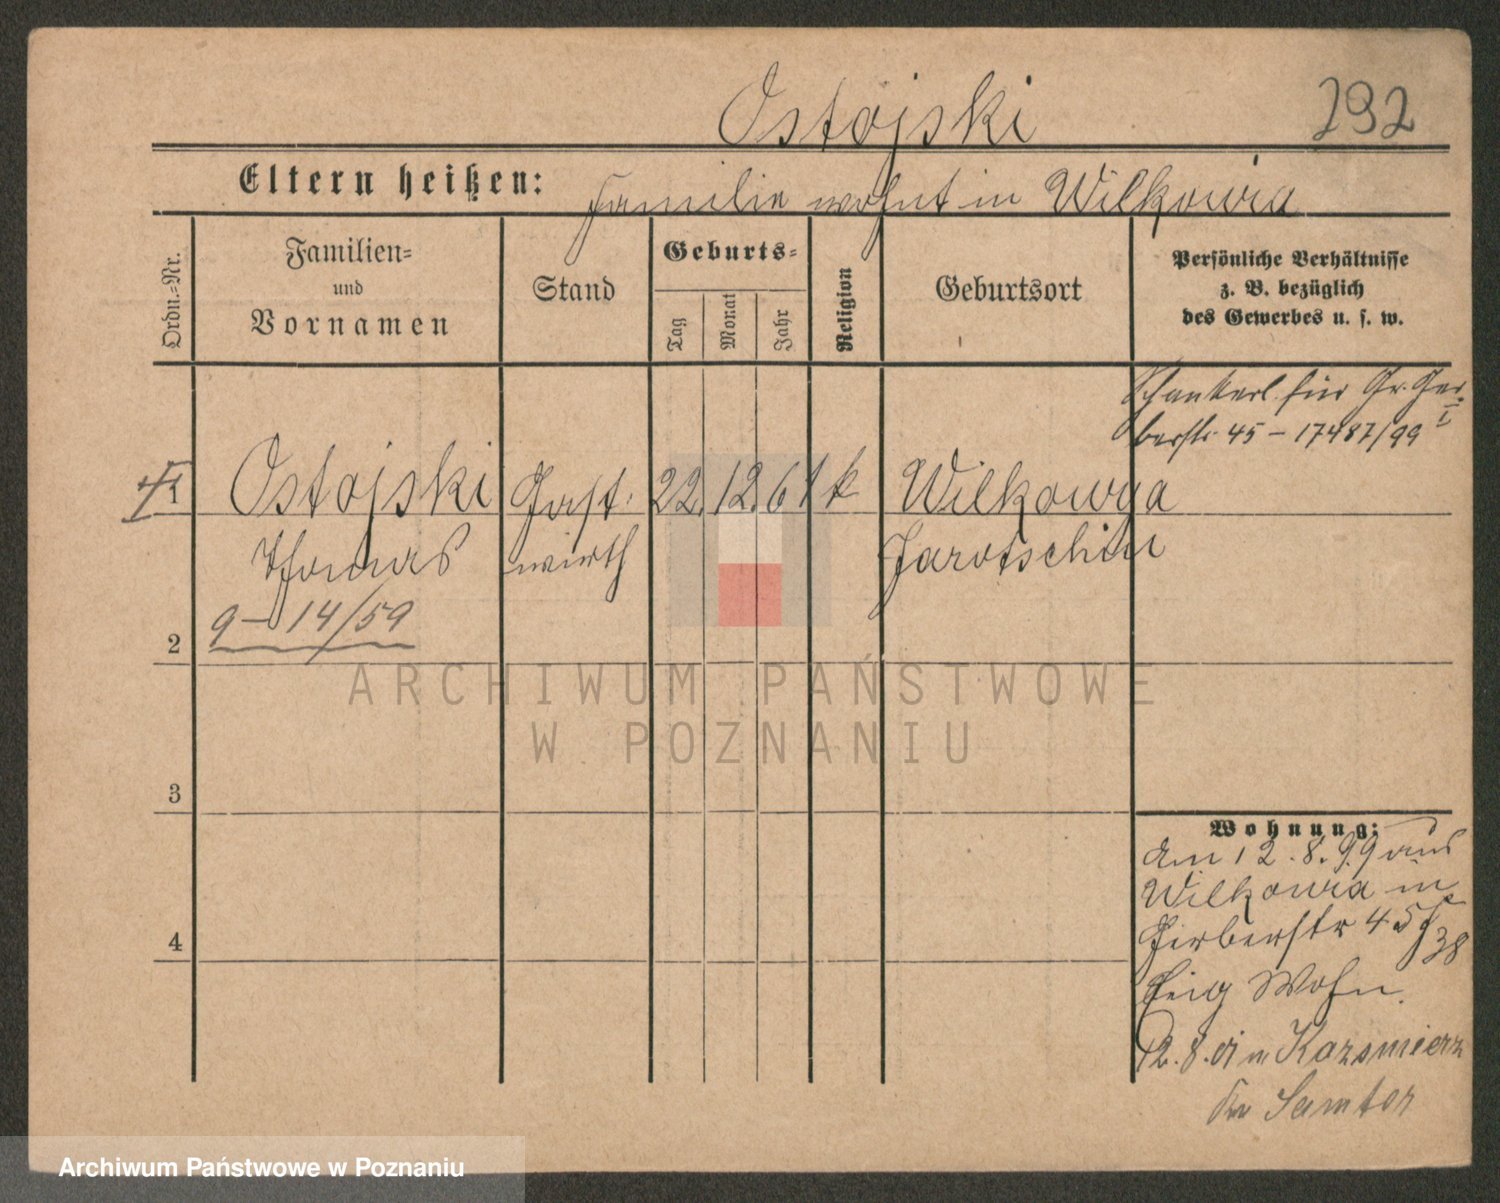 Ostojski
292
Eltern heißen: Familie wohnt in Wilkowia
Ordn.=Nr.
Familien=
und
Vornamen
Stand
Geburts=
Tag
Monat
Jahr
Religion
Geburtsort
Persönliche Verhältnisse
z. B. bezüglich
des Gewerbes u. s. w.
Schankerl. für Gr. Ger-
berstr. 45 - 17487/99
1 Ostojski Gast- 22. 12. 61 k Wilkowya
Thomas wirth Jarotschin
9-14/59
2
3
4
Wohnung:
Am 12.8.99 aus
Wilkowia in
Gerberstr 45
38
Eig Wohn.
12.8.01 n Kazsmierz
Kr Samter
ARCHIWUM PAŃSTWOWE
W POZNANIU
Archiwum Państwowe w Poznaniu